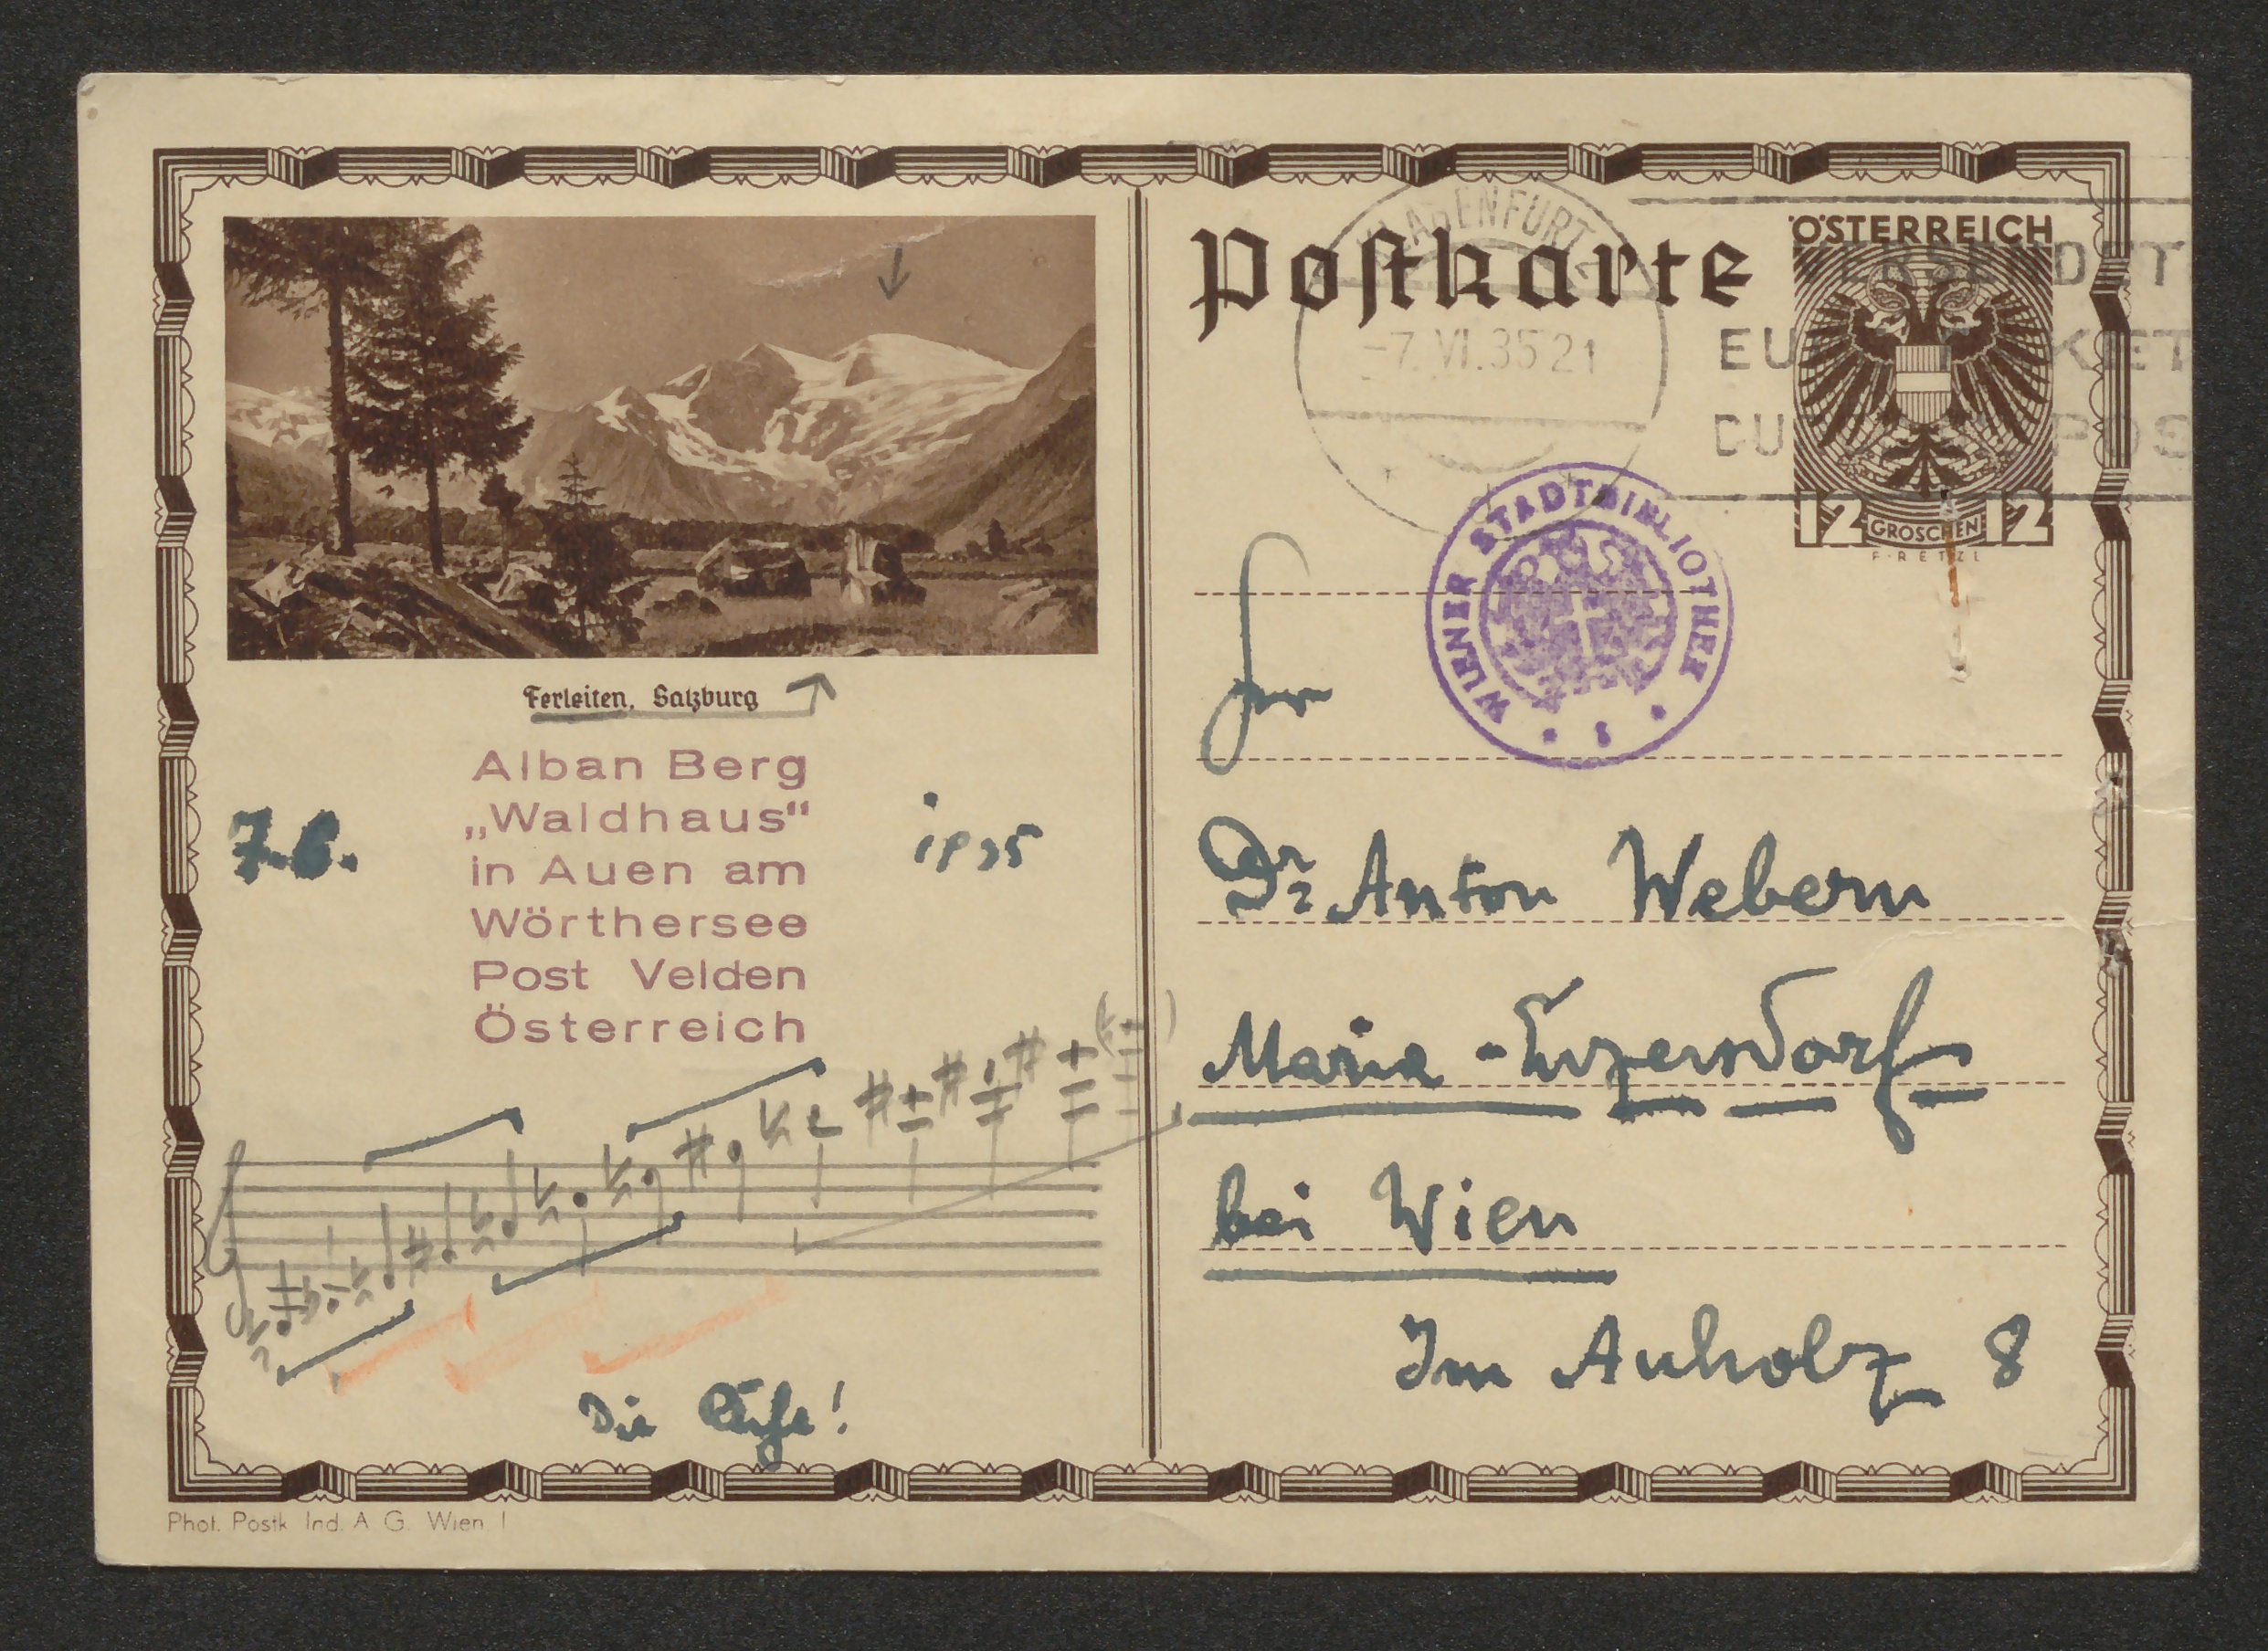 Ferleiten, Salzburg
Alban Berg
„Waldhaus“
in Auen am
Wörthersee
Post Velden
Österreich
7.6. 1935
Die Reihe!
Phot. Postk. Ind. A. G. Wien I
Postkarte
KLAGENFURT
-7.VI.35 21
ÖSTERREICH
12 GROSCHEN 12
F·RETZL
WIENER STADTBIBLIOTHEK
Dr Anton Webern
Maria-Enzersdorf
bei Wien
Im Auholz 8